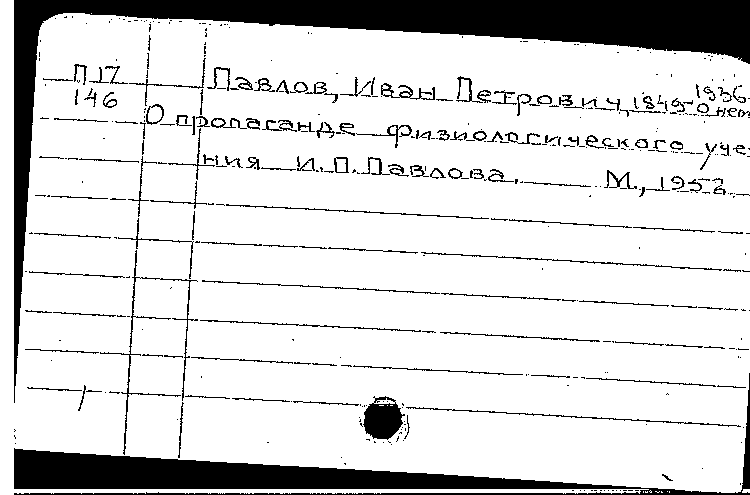 П 17
146
Павлов, Иван Петрович, 1849-1936
О нем
О пропаганде физиологического уче-
ния И.П. Павлова. М., 1952